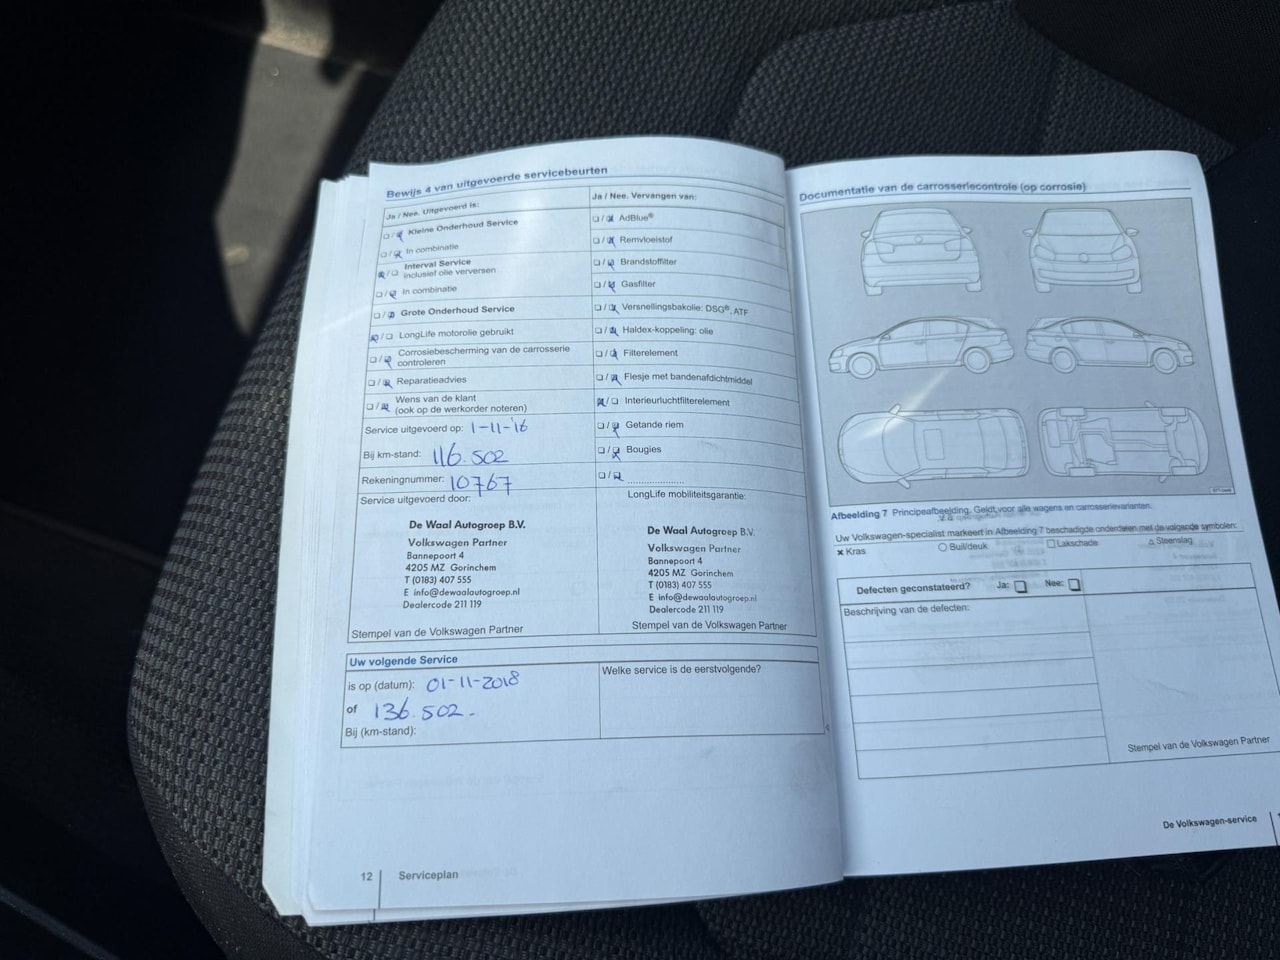 Bewijs 4 van uitgevoerde servicebeurten
Ja / Nee. Uitgevoerd is:
Kleine Onderhoud Service
In combinatie
Interval Service
inclusief olie verversen
In combinatie
Grote Onderhoud Service
LongLife motorolie gebruikt
Corrosiebescherming van de carrosserie
controleren
Reparatieadvies
Wens van de klant
(ook op de werkorder noteren)
Service uitgevoerd op: 1-11-'16
Bij km-stand: 116.502
Rekeningnummer: 10767
Service uitgevoerd door:
De Waal Autogroep B.V.
Volkswagen Partner
Bannepoort 4
4205 MZ Gorinchem
T (0183) 407 555
E info@dewaalautogroep.nl
Dealercode 211 119
Stempel van de Volkswagen Partner
Ja / Nee. Vervangen van:
AdBlue®
Remvloeistof
Brandstoffilter
Gasfilter
Versnellingsbakolie: DSG®, ATF
Haldex-koppeling: olie
Filterelement
Flesje met bandenafdichtmiddel
Interieurluchtfilterelement
Getande riem
Bougies
LongLife mobiliteitsgarantie:
De Waal Autogroep B.V.
Volkswagen Partner
Bannepoort 4
4205 MZ Gorinchem
T (0183) 407 555
E info@dewaalautogroep.nl
Dealercode 211 119
Stempel van de Volkswagen Partner
Uw volgende Service
is op (datum): 01-11-2018
of 136.502.
Bij (km-stand):
Welke service is de eerstvolgende?
12 Serviceplan
Documentatie van de carrosseriecontrole (op corrosie)
Afbeelding 7 Principeafbeelding. Geldt voor alle wagens en carrosserievarianten.
Uw Volkswagen-specialist markeert in Afbeelding 7 beschadigde onderdelen met de volgende symbolen:
x Kras
Buil/deuk
Lakschade
Steenslag
Defecten geconstateerd? Ja: Nee:
Beschrijving van de defecten:
Stempel van de Volkswagen Partner
De Volkswagen-service